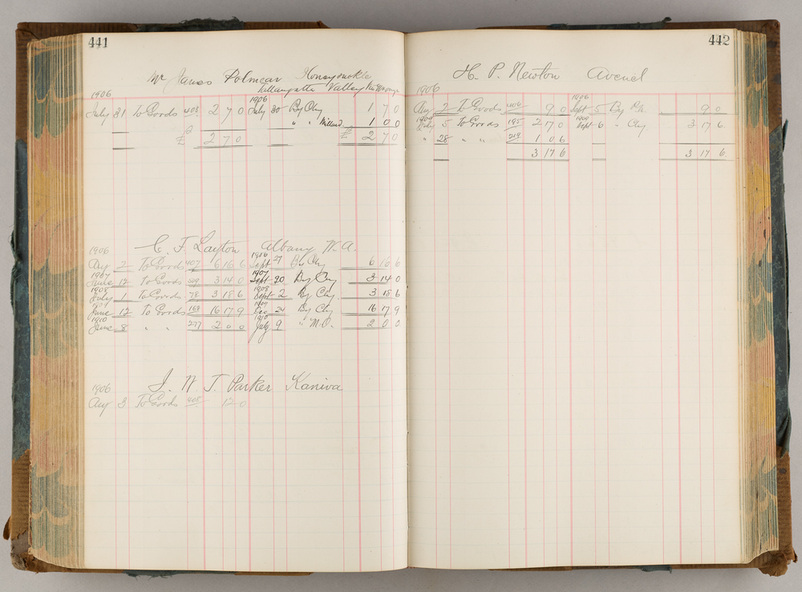 441
Mr James Polmear Honeysuckle
Tallangatta Valley
1906 1906
July 31 To Goods 403 2 7 0 July 30 By Chq 1 7 0
" " 1 0 0
£ 2 7 0 £ 2 7 0
C. F. Layton Albany W.A.
1906 1906
Aug 2 To Goods 407 6 16 6 Sept 27 By Chq 6 16 6
1907 1907
June 17 To Goods 3 14 0 Sept 20 By Chq 3 14 0
1908 1908
July 1 To Goods 78 3 18 6 Sept 2 By Chq 3 18 6
June 12 To Goods 168 16 17 9 24 By Chq 16 17 9
1910 1910
June 8 " " 277 2 0 0 July 9 " M.O. 2 0 0
J. W. T. Parker Kaniva
1906
Aug 3 To Goods 12 0
442
H. P. Newton Avenel
1906 1906
Aug 2 To Goods 406 9 0 Sept 5 By 9 0
July 5 To Goods 195 2 7 0 Sept 6 " Chq 3 17 6
" 28 " " 219 1 0 6
3 17 6 3 17 6